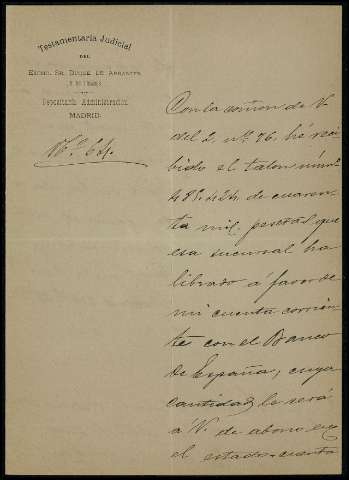 Testamentaría Judicial
DEL
EXCMO. SR. DUQUE DE ABRANTES
Depositaría Administración
MADRID.
Nº 64.
Con la comon de V.
del 2, nº 76, hé reci
bido el talon núm.
485.424, de cuaren
ta mil pesetas, que
esa sucursal ha
librado á favor de
mi cuenta corrien
te con el Banco
de España, cuya
cantidad le será
á V. de abono en
el estado-cuenta